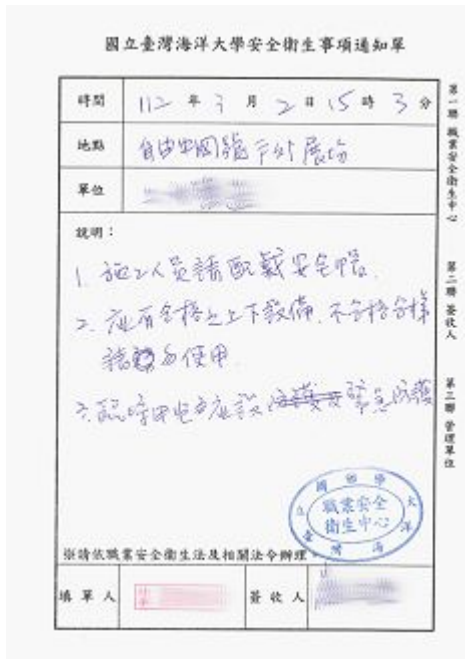 國立臺灣海洋大學安全衛生事項通知單
時間 112 年 3 月 2 日 15 時 3 分
地點 自由中國號戶外展場
單位
說明：
1. 施工人員請配戴安全帽.
2. 應有合格之上下設備, 不合格合梯
請勿使用.
3. 臨時用電應設 防護
國立臺灣海洋大學
職業安全
衛生中心
※請依職業安全衛生法及相關法令辦理。
填單人 簽收人
第一聯 職業安全衛生中心
第二聯 簽收人
第三聯 管理單位